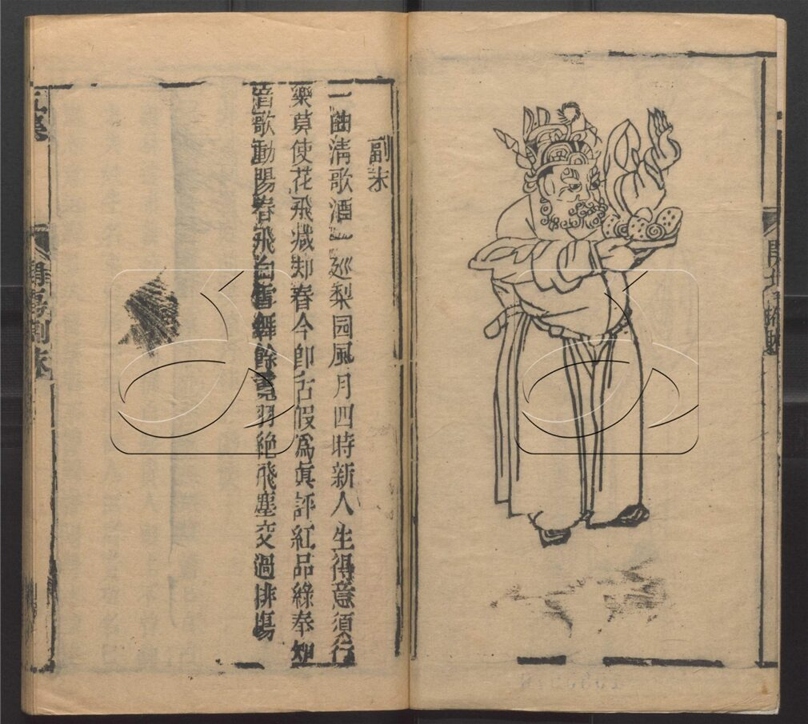 副末
一曲清歌酒一廵梨园風月四時新人生得意須行
樂莫使花飛减却春今卽古假爲眞評紅品綠奉知
音歌動陽春飛白雪舞餘霓羽絶飛塵交過排塲